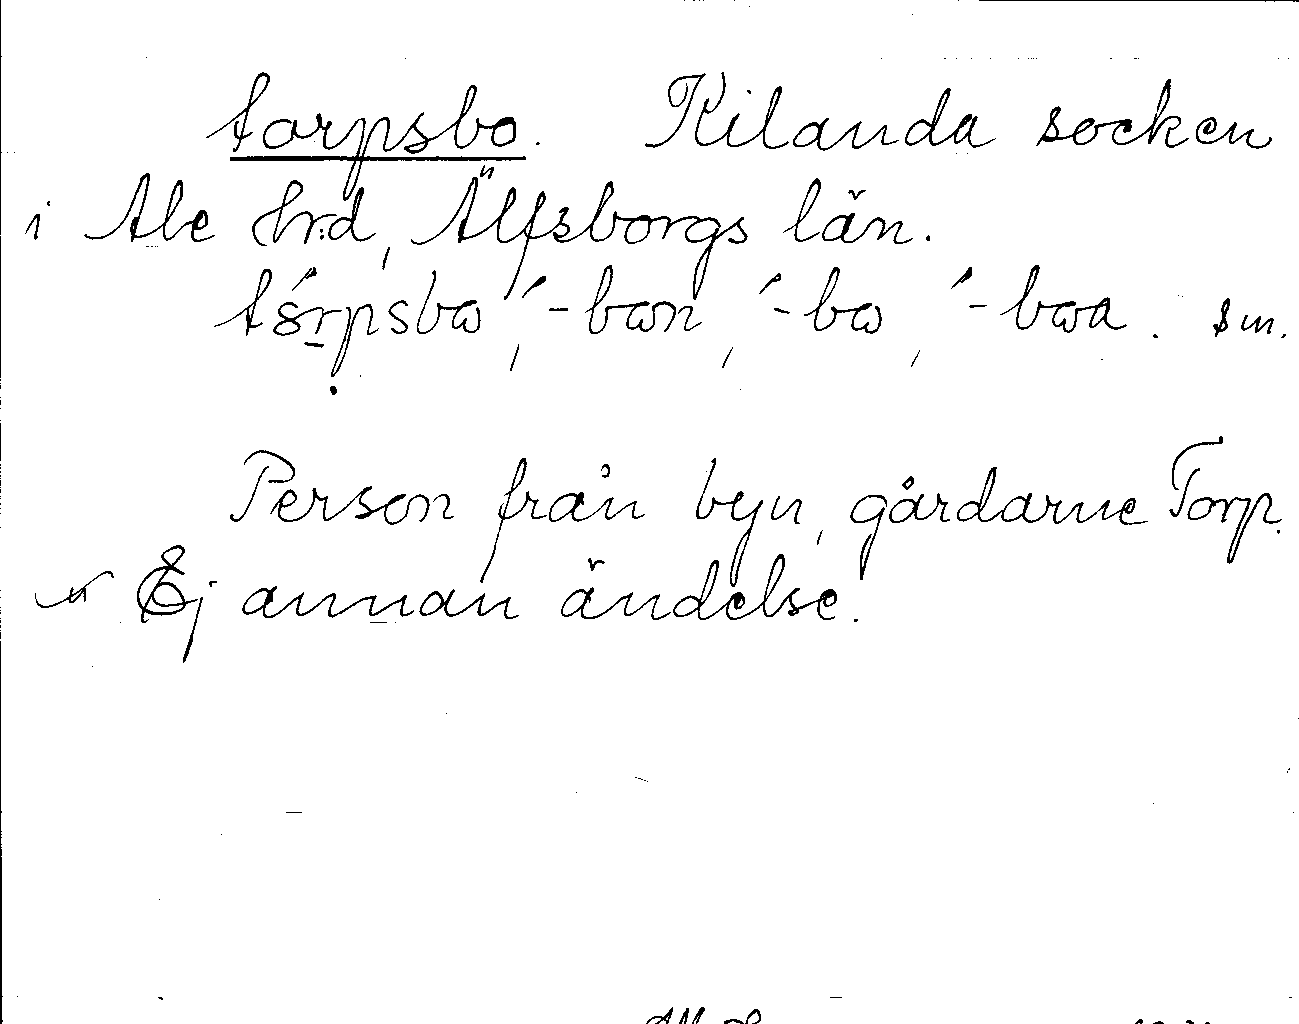 torpsbo. Kilanda socken
i Ale Hrd, Älfsborgs län.
tórpsbɷ, ´-bɷn, ´-bɷ, ´-bɷa. sm.
Person från byn, gårdarne Torp.
Ej annan ändelse.